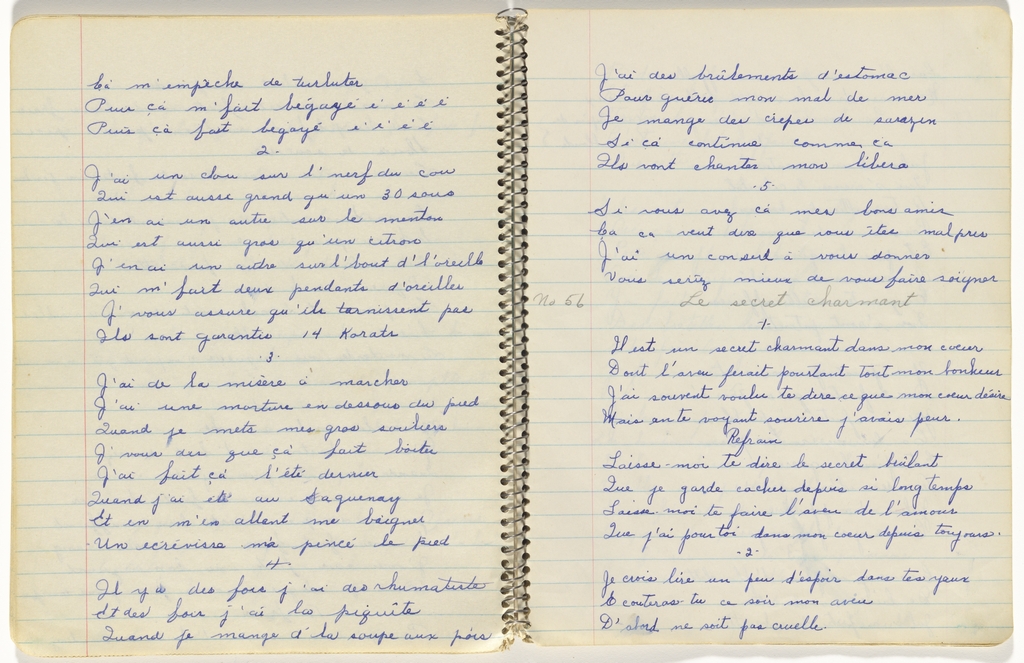 Ça m'empêche de turluter
Puis ça m'fait bégayé é é é é
Puis çà fait begayé é é é é
2.
J'ai un clou sur l'nerf du cou
Qui est aussi grand qu'un 30 sous
J'en ai un autre sur le menton
Qui est aussi gros qu'un citron
J'en ai un autre sur l'bout d'l'oreille
Qui m'fait deux pendants d'oreilles
J'vous assure qu'ils tarnissent pas
Ils sont garantis 14 Karats
.3.
J'ai de la misère à marcher
J'ai une morture en dessous du pied
Quand je mets mes gros souliers
J'vous dis que çà fait boiter
J'ai fait çà l'été dernier
Quand j'ai été au Saguenay
Et en m'en allant me baigner
Un ecrévisse m'a pincé le pied
4.
Il y a des fois j'ai des rhumatiste
Et des fois j'ai la piquite
Quand je mange d'la soupe aux pois
J'ai des brûlements d'estomac
Pour guérir mon mal de mer
Je mange des crêpes de sarazin
Si çà continue comme, ça
Ils vont chanter mon libera
.5.
Si vous avez çà mes bons amis
Ca ça veut dire que vous êtes mal pris
J'ai un conseil à vous donner
Vous seriez mieux de vous faire soigner
No 56 Le secret charmant
1.
Il est un secret charmant dans mon coeur
Dont l'aveu ferait pourtant tout mon bonheur
J'ai souvent voulu te dire ce que mon coeur désire
Mais en te voyant sourire j'avais peur.
Refrain
Laisse-moi te dire le secret brûlant
Que je garde cacher depuis si longtemps
Laisse moi te faire l'aveu de l'amour
Que j'ai pour toi dans mon coeur depuis toujours.
.2.
Je crois lire un peu d'espoir dans tes yeux
Ecouteras-tu ce soir mon aveu
D'abord ne soit pas cruelle.